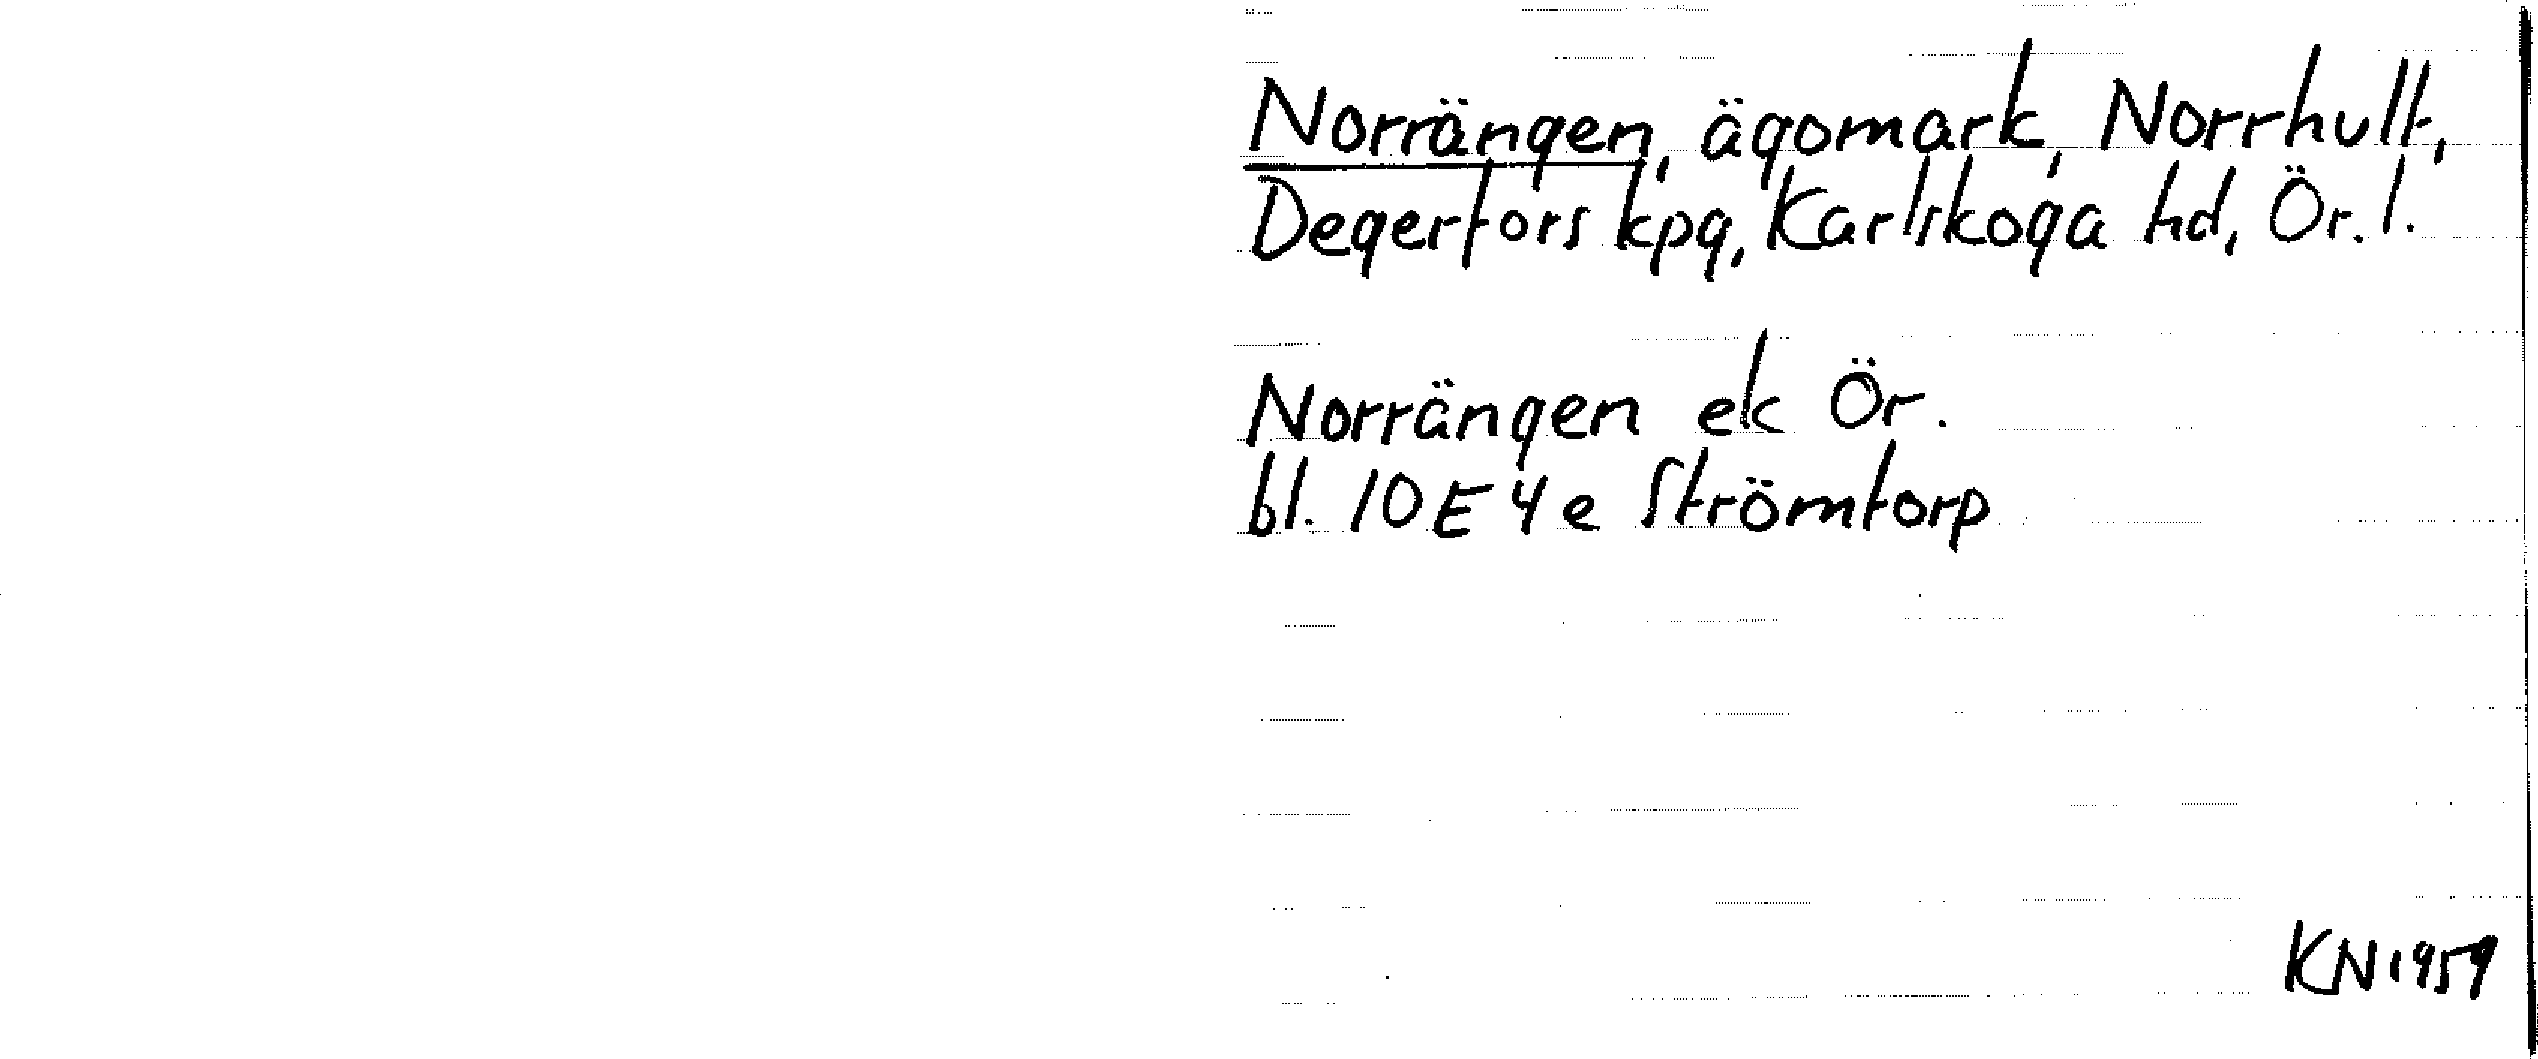 Norrängen, ägomark, Norrhult,
Degerfors kpg, Karlskoga hd, Ör. l.
Norrängen ek Ör.
bl. 10E4e Strömtorp
KN1959